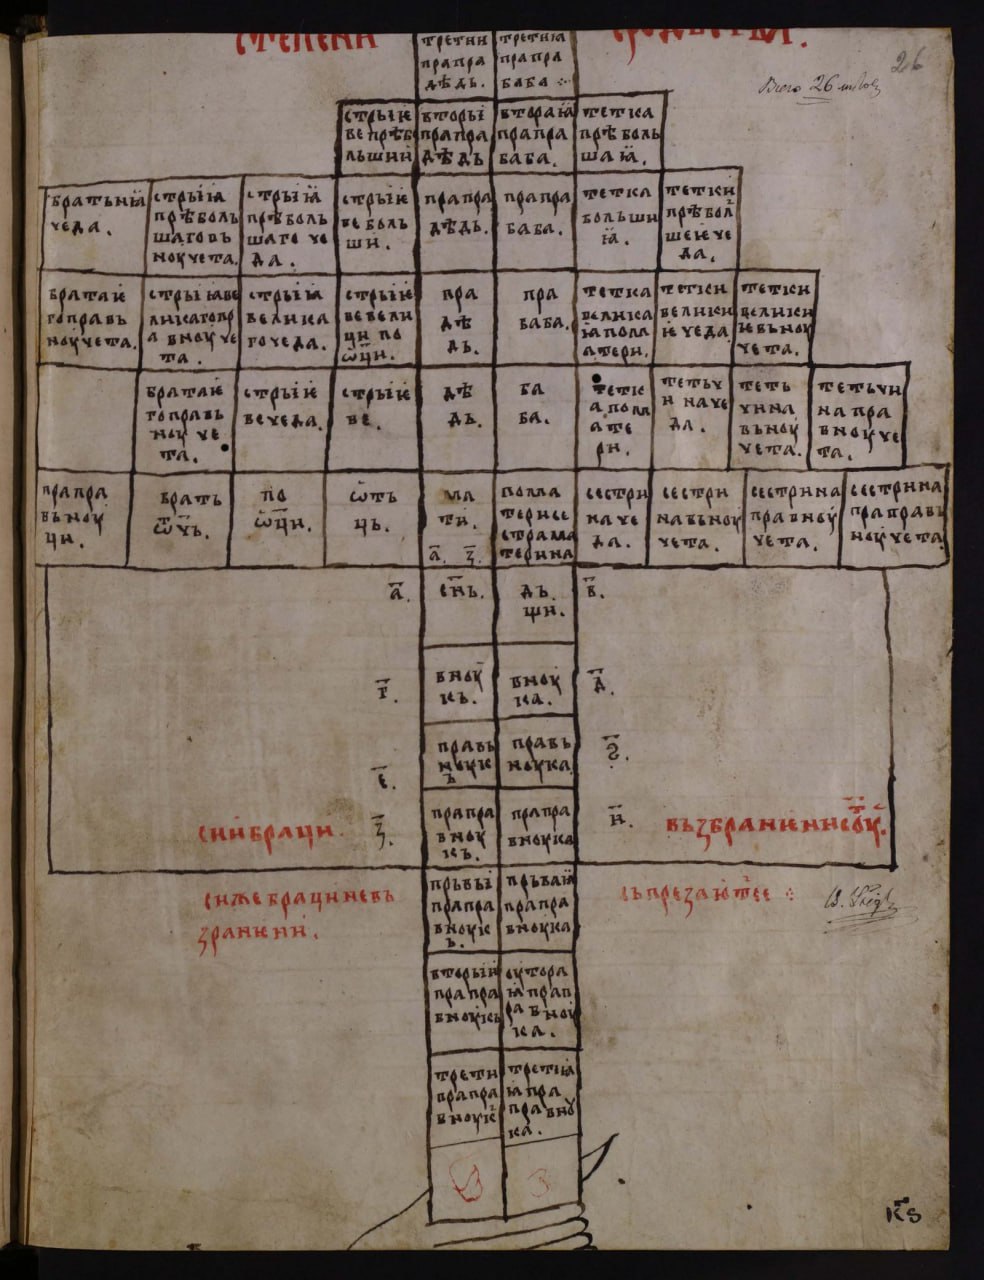 степени сродьства.
26
Всего 26 листов
трети
прапра
дѣдь.
третиꙗ
прапра
баба ⁘
стрыѥ
ве прѣб
льшии
вторы
прапра
дѣдь
втораꙗ
прапра
баба.
тетка
прѣболь
шаꙗ.
братьнꙗ
чеда.
стрыꙗ
прѣболь
шаго въ
ноучета.
стрыꙗ
прѣболь
шаго че
да.
стрыѥ
ве боль
ши.
прапра
дѣдь.
прапра
баба.
тетка
больши
ꙗ.
теткы
прѣбол
шеѥ че
да.
братаѥ
го правь
ноучета.
стрыꙗ ве
ликаго пр
а вноу че
та.
стрыꙗ
велика
го чеда.
стрыѥ
ве вели
ци по
ѡ҃ци.
пра
дѣ
дь.
пра
баба.
тетка
велика
ꙗ пома
тери.
тетки
велики
ѥ чеда
тетки
велики
ѥ вьноу
чета.
братаѥ
го правь
ноу че
та.
стрыѥ
ве чеда.
стрыѥ
ве.
дѣ
дь.
ба
ба.
тетк
а пома
те
ри.
тетьч
и на че
да.
теть
чина
вьноу
чета.
тетьчи
на пра
вноу че
та.
прапра
вьноу
ци.
брать
ѿ҃чь.
по
ѡ҃ци.
ѡть
ць.
ма
ти.
а҃. з҃.
пома
терисе
страма
терина
сестри
на че
да.
сестри
на вьноу
чета.
сестрина
правноу
чета.
сестрина
праправь
ноучета.
а҃.
сн҃ь.
дь
щи.
в҃.
г҃.
вноу
кь.
вноу
ка.
д҃.
е҃.
правь
ноук
ь
правь
ноука
ѕ҃.
сиибраци.
з҃.
прапра
вноу
кь.
прапра
вноука
и҃.
вьзбранѥни соу҃т.
сиже браци невь
зранѥни.
прьвы
прапра
вноук
ь.
прьваꙗ
прапра
вноука
сьпрезаютсе ⁘
вторыи
прапра
вноукь
оутора
ꙗ прап
ра вноу
ка.
трети
прапра
вноукь
третиꙗ
ꙗ пра
правноу
ка.
к҃ѕ